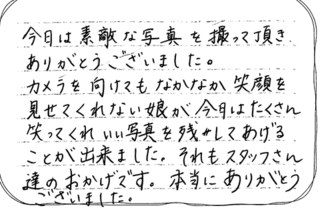 今日は素敵な写真を撮って頂き
ありがとうございました。
カメラを向けてもなかなか笑顔を
見せてくれない娘が今日はたくさん
笑ってくれいい写真を残してあげる
ことが出来ました。それもスタッフさん
達のおかげです。本当にありがとう
ございました。